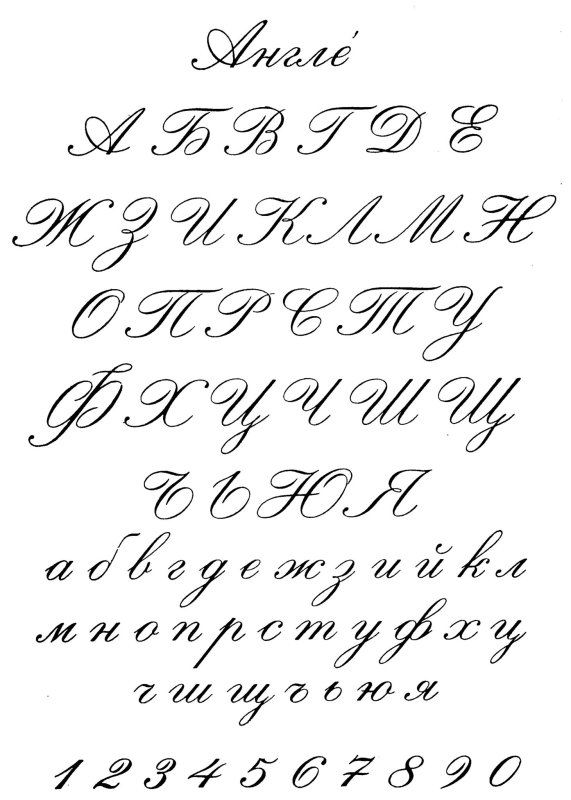 Англе́
А Б В Г Д Е
Ж З И К Л М Н
О П Р С Т У
Ф Х Ц Ч Ш Щ
Ъ Ь Ю Я
а б в г д е ж з и й к л
м н о п р с т у ф х ц
ч ш щ ъ ь ю я
1 2 3 4 5 6 7 8 9 0